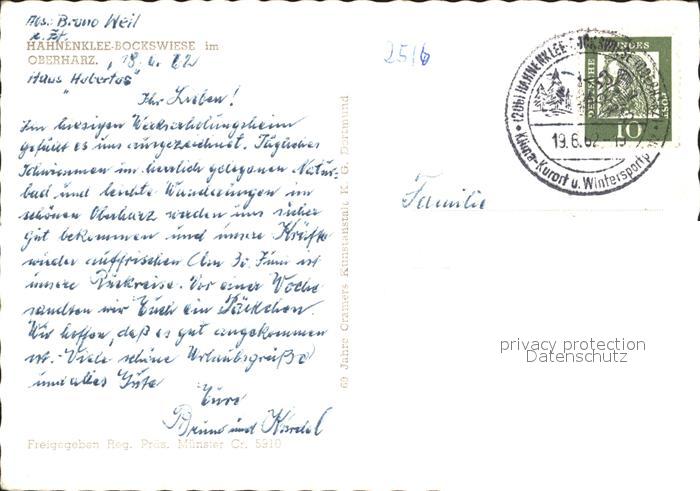 Abs: Bruno Weil
z. Zt.
HAHNENKLEE-BOCKSWIESE im
OBERHARZ, 18.6.62
"Haus Hubertus"
Ihr Lieben!
Im hiesigen Werkserholungsheim
gefällt es uns ausgezeichnet. Tägliches
Schwimmen im herrlich gelegenen Natur-
bad und leichte Wanderungen im
schönen Oberharz werden uns sicher
gut bekommen und unsere Kräfte
wieder auffrischen. Am 30. Juni ist
unsere Rückreise. Vor einer Woche
sandten wir Euch ein Päckchen.
Wir hoffen, daß es gut angekommen
ist. - Viele schöne Urlaubsgrüße
und alles Gute
Eure
Bruno und
Freigegeben Reg. Präs. Münster Cr. 5910
69 Jahre Cramers Kunstanstalt K. G. Dortmund
2516
(20b) HAHNENKLEE-BOCKSWIESE (OBERHARZ)
19.6.62
Klima-Kurort u. Wintersportpl.
DEUTSCHE BUNDESPOST
10
Familie
privacy protection
Datenschutz